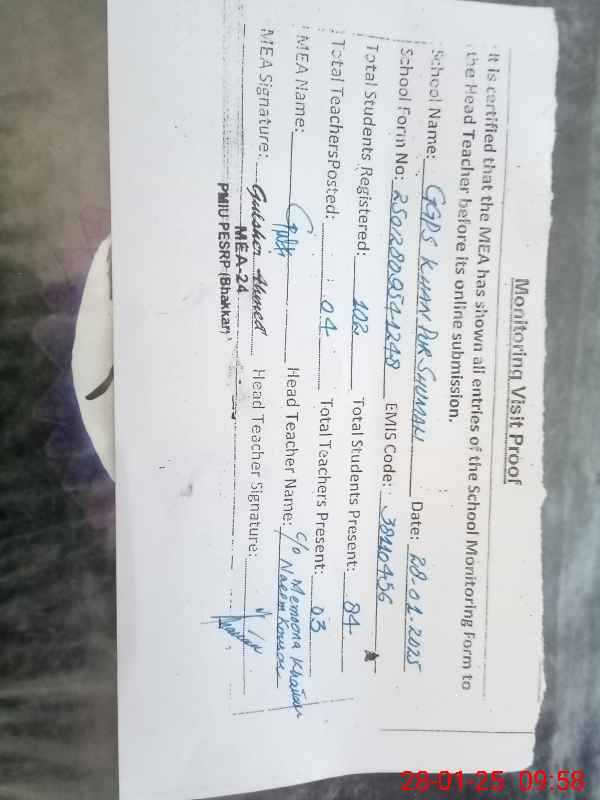 Monitoring Visit Proof
It is certified that the MEA has shown all entries of the School Monitoring Form to
the Head Teacher before its online submission.
School Name: GGPS KHAN PUR SHUMALI Date: 28.01.2025
School Form No: EMIS Code: 38440456
Total Students Registered: 102 Total Students Present: 84
Total TeachersPosted: 04 Total Teachers Present: 03
MEA Name: Head Teacher Name: c/o Memoona Khatoon
MEA Signature: Gulsher Ahmed Head Teacher Signature:
MEA-24
PMIU PESRP (Bhakkar)
28-01-25 09:58